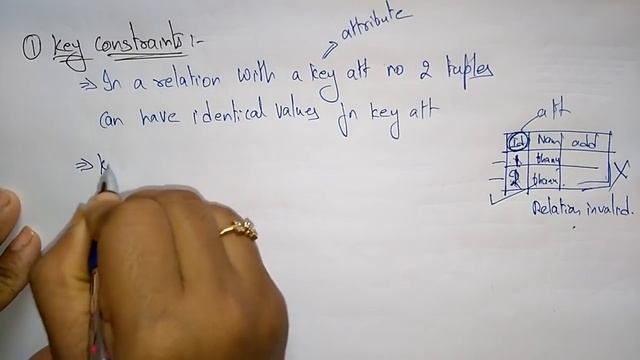 ① Key Constraints :-
attribute
⇒ In a relation with a key att no 2 tuples
Can have identical values In key att
⇒ k
att
Id Nam add
1
2
X
Relation invalid.